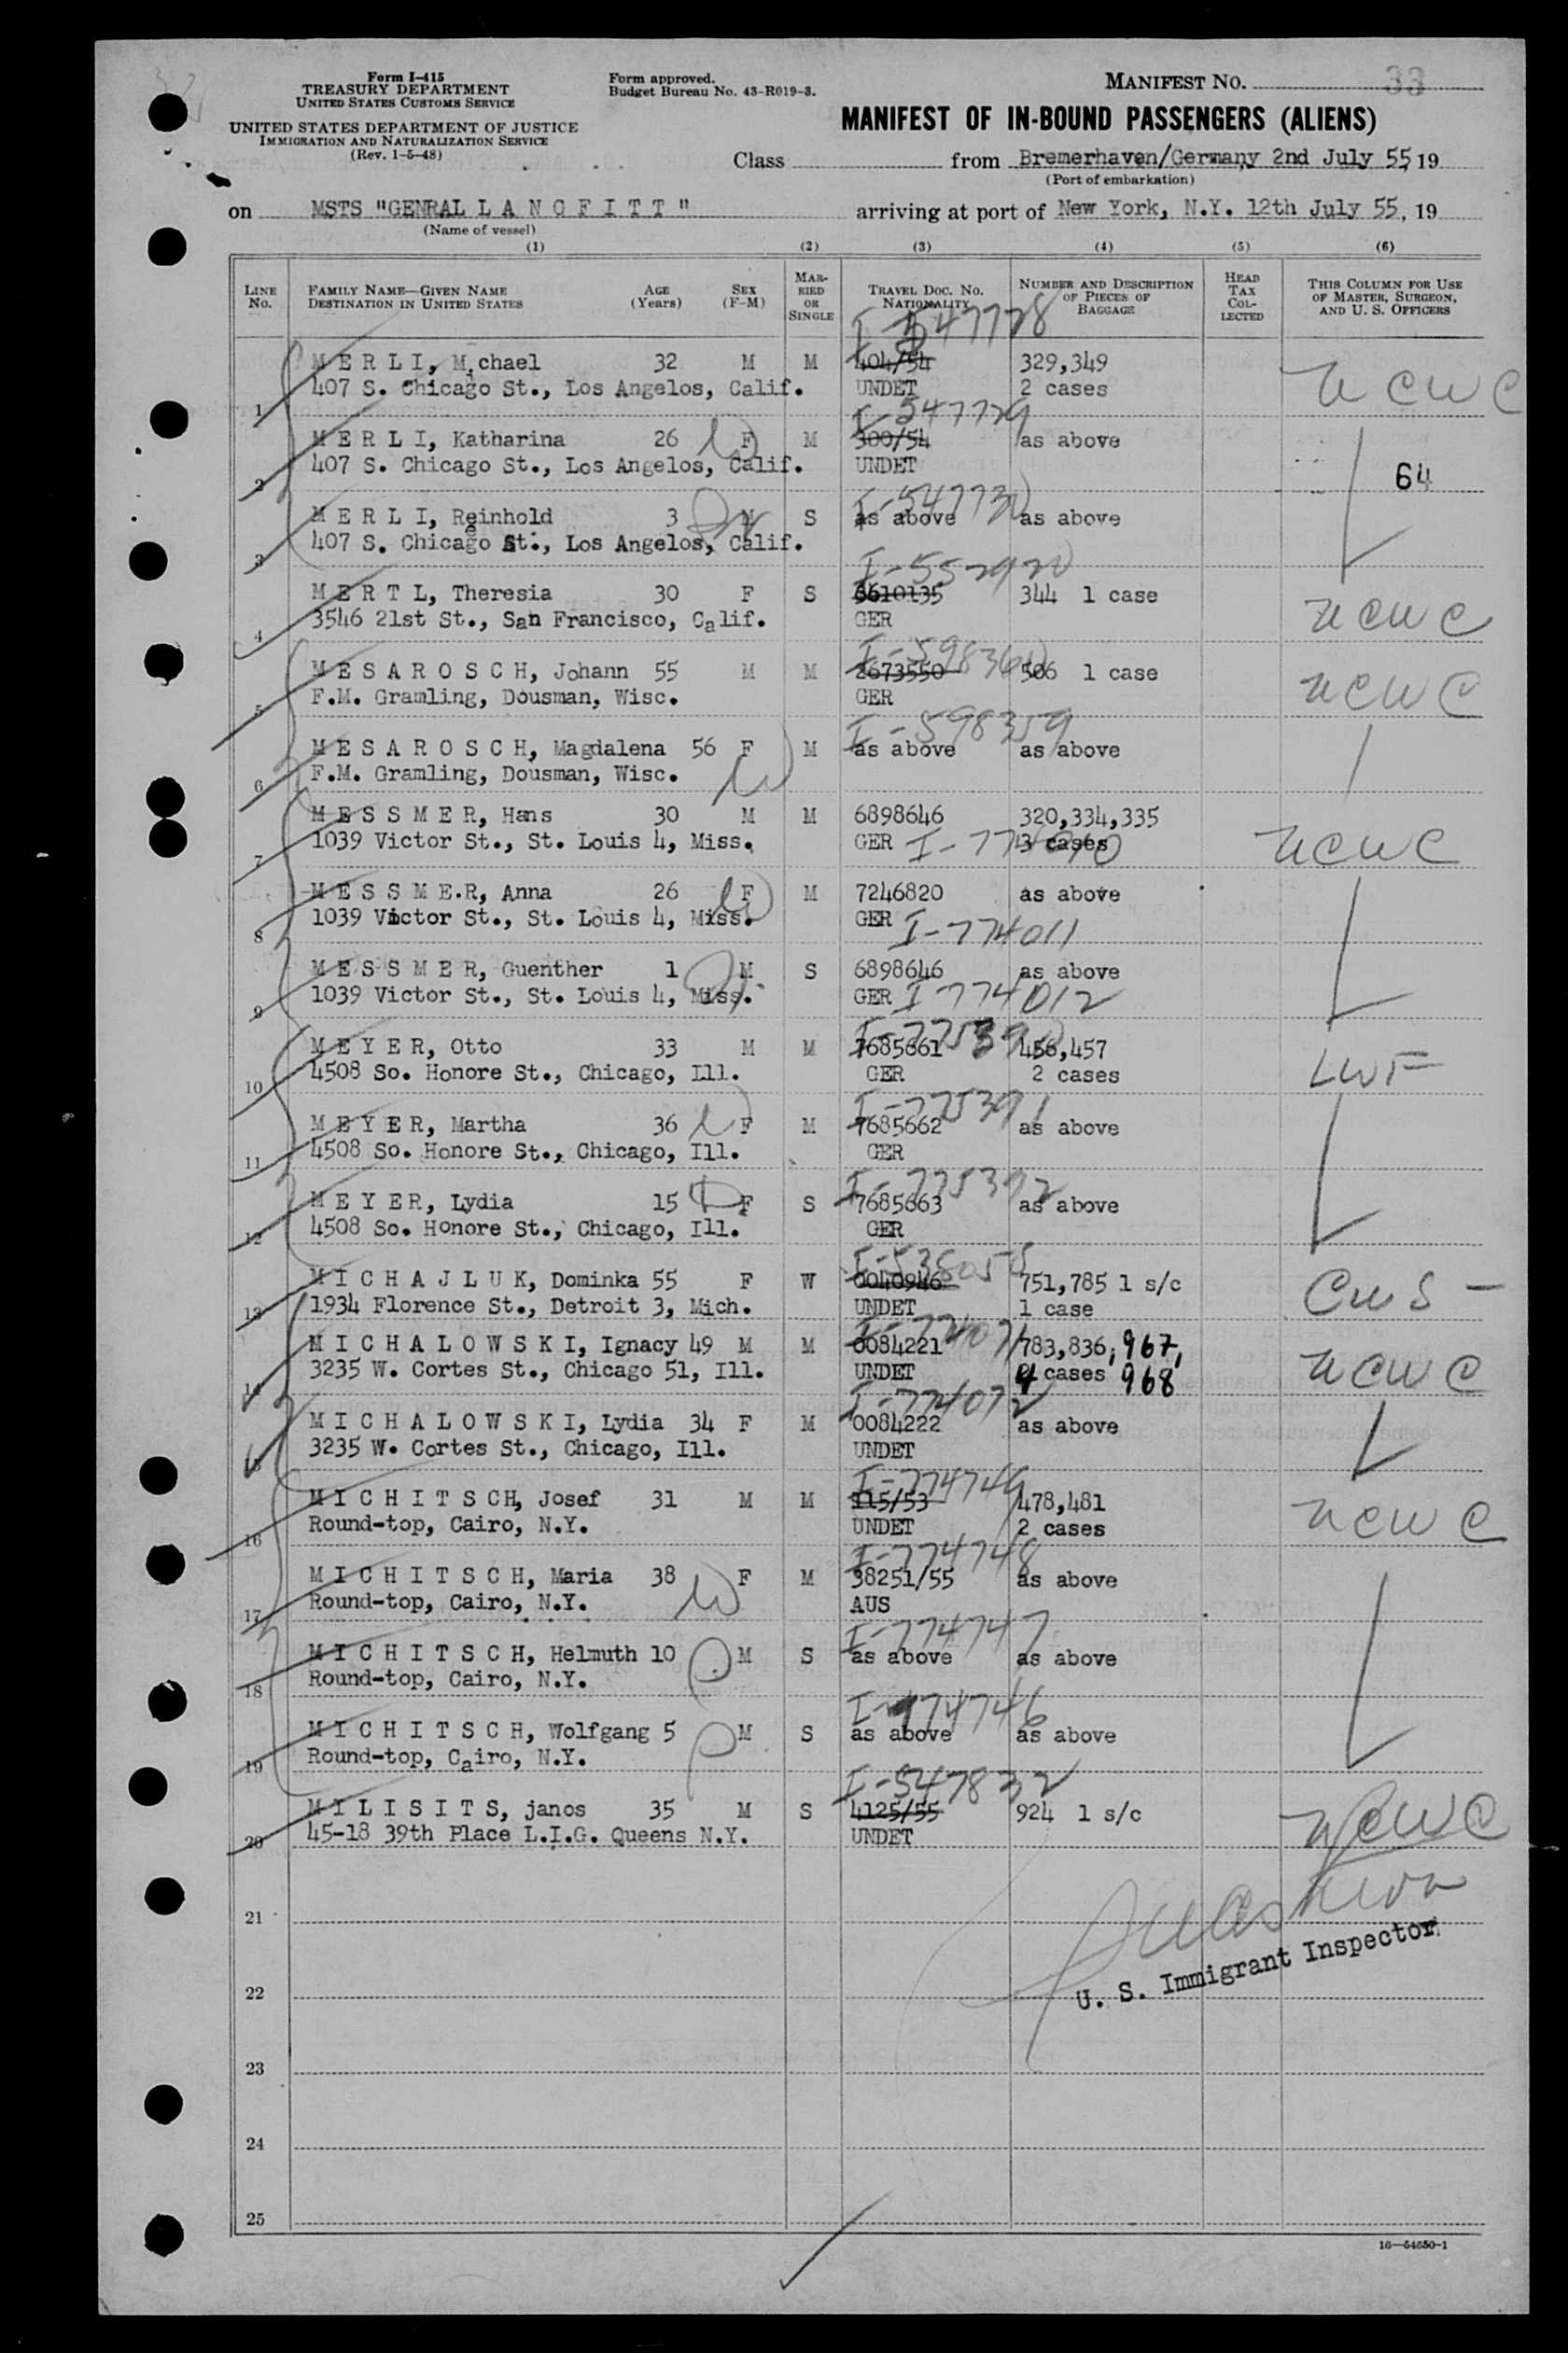 Form I-415
TREASURY DEPARTMENT
UNITED STATES CUSTOMS SERVICE
UNITED STATES DEPARTMENT OF JUSTICE
IMMIGRATION AND NATURALIZATION SERVICE
(Rev. 1-5-48)
Form approved.
Budget Bureau No. 43-R019-3.
MANIFEST NO. 33
MANIFEST OF IN-BOUND PASSENGERS (ALIENS)
Class from Bremerhaven/Germany 2nd July 55, 19
(Port of embarkation)
on MSTS "GENRAL L A N G F I T T" arriving at port of New York, N.Y. 12th July 55, 19
(Name of vessel)
(1) (2) (3) (4) (5) (6)
LINE No. FAMILY NAME—GIVEN NAME DESTINATION IN UNITED STATES AGE (Years) SEX (F-M) MARRIED OR SINGLE TRAVEL DOC. NO. NATIONALITY NUMBER AND DESCRIPTION OF PIECES OF BAGGAGE HEAD TAX COLLECTED THIS COLUMN FOR USE OF MASTER, SURGEON, AND U. S. OFFICERS
I-547728
M E R L I, Michael 32 M M 404/54 329,349
1 407 S. Chicago St., Los Angelos, Calif. UNDET 2 cases NCWC
I-547729
M E R L I, Katharina 26 F M 300/54 as above
2 407 S. Chicago St., Los Angelos, Calif. UNDET 64
I-547730
M E R L I, Reinhold 3 M S as above as above
3 407 S. Chicago St., Los Angelos, Calif.
I-552920
M E R T L, Theresia 30 F S 6610135 344 1 case
4 3546 21st St., San Francisco, Calif. GER NCWC
I-598360
M E S A R O S C H, Johann 55 M M 2673550 506 1 case
5 F.M. Gramling, Dousman, Wisc. GER NCWC
I-598359
M E S A R O S C H, Magdalena 56 F M as above as above
6 F.M. Gramling, Dousman, Wisc.
M E S S M E R, Hans 30 M M 6898646 320,334,335
7 1039 Victor St., St. Louis 4, Miss. GER I-774010 3 cases NCWC
M E S S M E.R, Anna 26 F M 7246820 as above
8 1039 Victor St., St. Louis 4, Miss. GER I-774011
M E S S M E R, Guenther 1 M S 6898646 as above
9 1039 Victor St., St. Louis 4, Miss. GER I774012
I-775390
M E Y E R, Otto 33 M M 7685661 456,457
10 4508 So. Honore St., Chicago, Ill. GER 2 cases LWF
I-775391
M E Y E R, Martha 36 F M 7685662 as above
11 4508 So. Honore St., Chicago, Ill. GER
I-775392
M E Y E R, Lydia 15 F S 7685663 as above
12 4508 So. Honore St., Chicago, Ill. GER
M I C H A J L U K, Dominka 55 F W 0040946 751,785 1 s/c
13 1934 Florence St., Detroit 3, Mich. UNDET 1 case CWS -
I-774071
M I C H A L O W S K I, Ignacy 49 M M 0084221 783,836, 967,
14 3235 W. Cortes St., Chicago 51, Ill. UNDET 4 cases 968 NCWC
I-774072
M I C H A L O W S K I, Lydia 34 F M 0084222 as above
15 3235 W. Cortes St., Chicago, Ill. UNDET
I-774749
M I C H I T S C H, Josef 31 M M 115/53 478,481
16 Round-top, Cairo, N.Y. UNDET 2 cases NCWC
I-774748
M I C H I T S C H, Maria 38 F M 38251/55 as above
17 Round-top, Cairo, N.Y. AUS
I-774747
M I C H I T S C H, Helmuth 10 M S as above as above
18 Round-top, Cairo, N.Y.
I-774746
M I C H I T S C H, Wolfgang 5 M S as above as above
19 Round-top, Cairo, N.Y.
I-547832
M I L I S I T S, janos 35 M S 4125/55 924 1 s/c
20 45-18 39th Place L.I.G. Queens N.Y. UNDET NCWC
21
U. S. Immigrant Inspector
22
23
24
25
16—54650-1